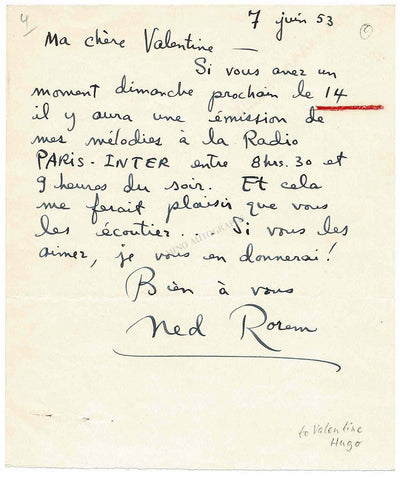 4
7 juin 53
2
Ma chère Valentine —
Si vous avez un
moment dimanche prochain le 14
il y aura une émission de
mes mélodies à la Radio
PARIS-INTER entre 8hrs.30 et
9 heures du soir. Et cela
me ferait plaisir que vous
les écoutier... Si vous les
aimez, je vous en donnerai!
Bien à vous
Ned Rorem
to Valentine
Hugo